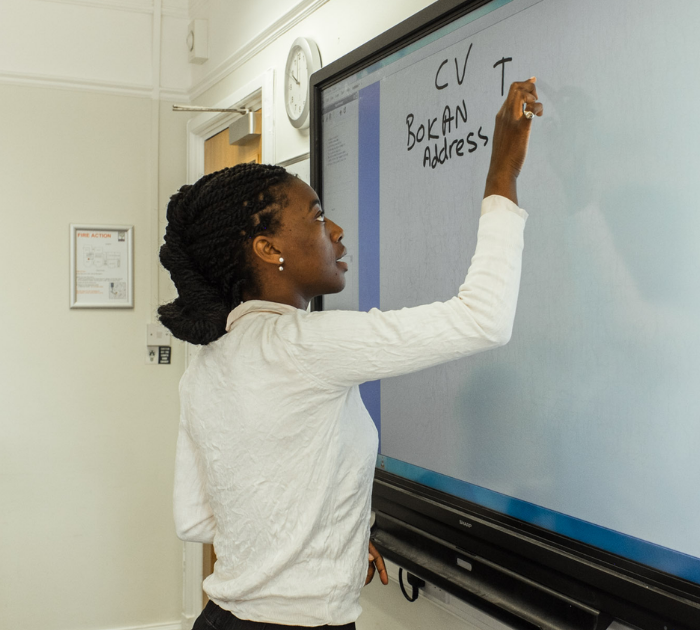 CV T
BOKAN
Address
FIRE ACTION
SHARP